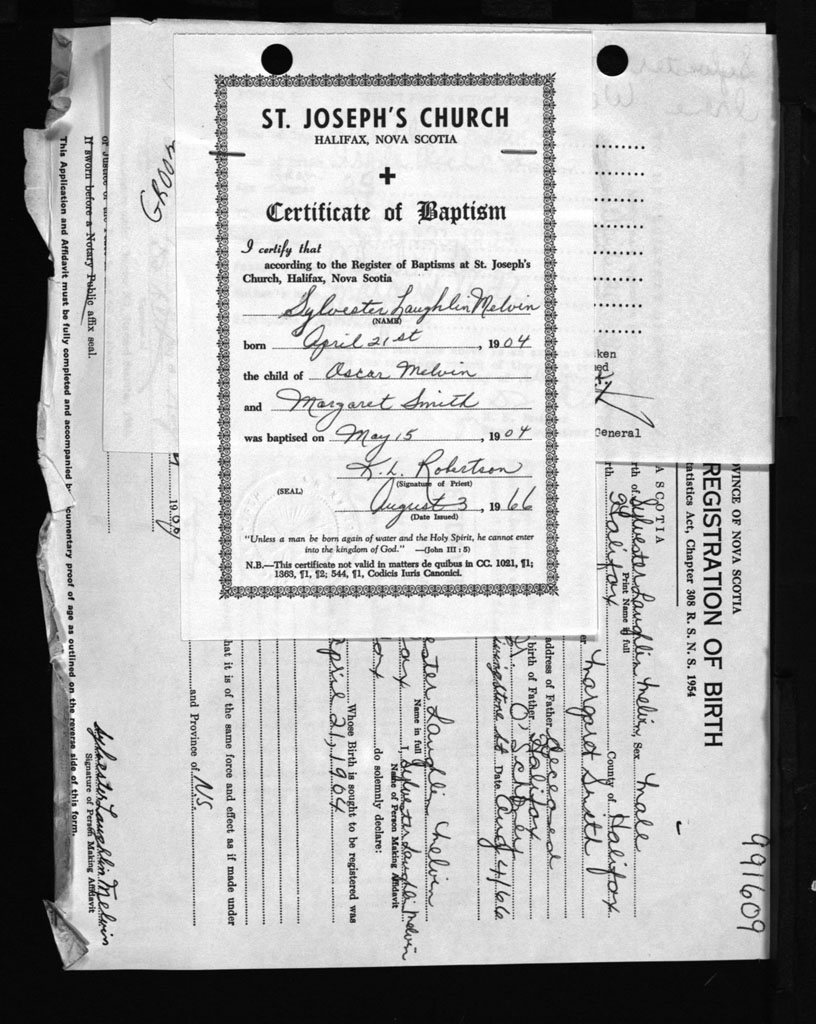 ST. JOSEPH'S CHURCH
HALIFAX, NOVA SCOTIA
Certificate of Baptism
I certify that
according to the Register of Baptisms at St. Joseph's
Church, Halifax, Nova Scotia
Sylvester Laughlin Melvin
(NAME)
born April 21st, 1904
the child of Oscar Melvin
and Margaret Smith
was baptised on May 15, 1904
K. L. Robertson
(Signature of Priest)
(SEAL)
August 3 1966
(Date Issued)
"Unless a man be born again of water and the Holy Spirit, he cannot enter
into the kingdom of God." —(John III : 5)
N.B.—This certificate not valid in matters de quibus in CC. 1021, ¶1;
1363, ¶1, ¶2; 544, ¶1, Codicis Iuris Canonici.
ken
ed
General
991609
OVINCE OF NOVA SCOTIA
REGISTRATION OF BIRTH
tatistics Act, Chapter 308 R. S. N. S. 1954
A SCOTIA
rth of Sylvester Laughlin Melvin, Sex Male
Print Name in full
rth Halifax County of Halifax
er Margaret Smith
address of Father deceased
birth of Father Halifax
Livingstone St. Date Aug 4/66
ester Laughlin Melvin
Name in full
I, Sylvester Laughlin Melvin
Name of Person Making Affidavit
ax
do solemnly declare:
Whose Birth is sought to be registered was
April 21, 1904
hat it is of the same force and effect as if made under
and Province of N.S.
19
If sworn before a Notary Public affix seal.
This Application and Affidavit must be fully completed and accompanied by documentary proof of age as outlined on the reverse side of this form.
Sylvester Laughlin Melvin
Signature of Person Making Affidavit